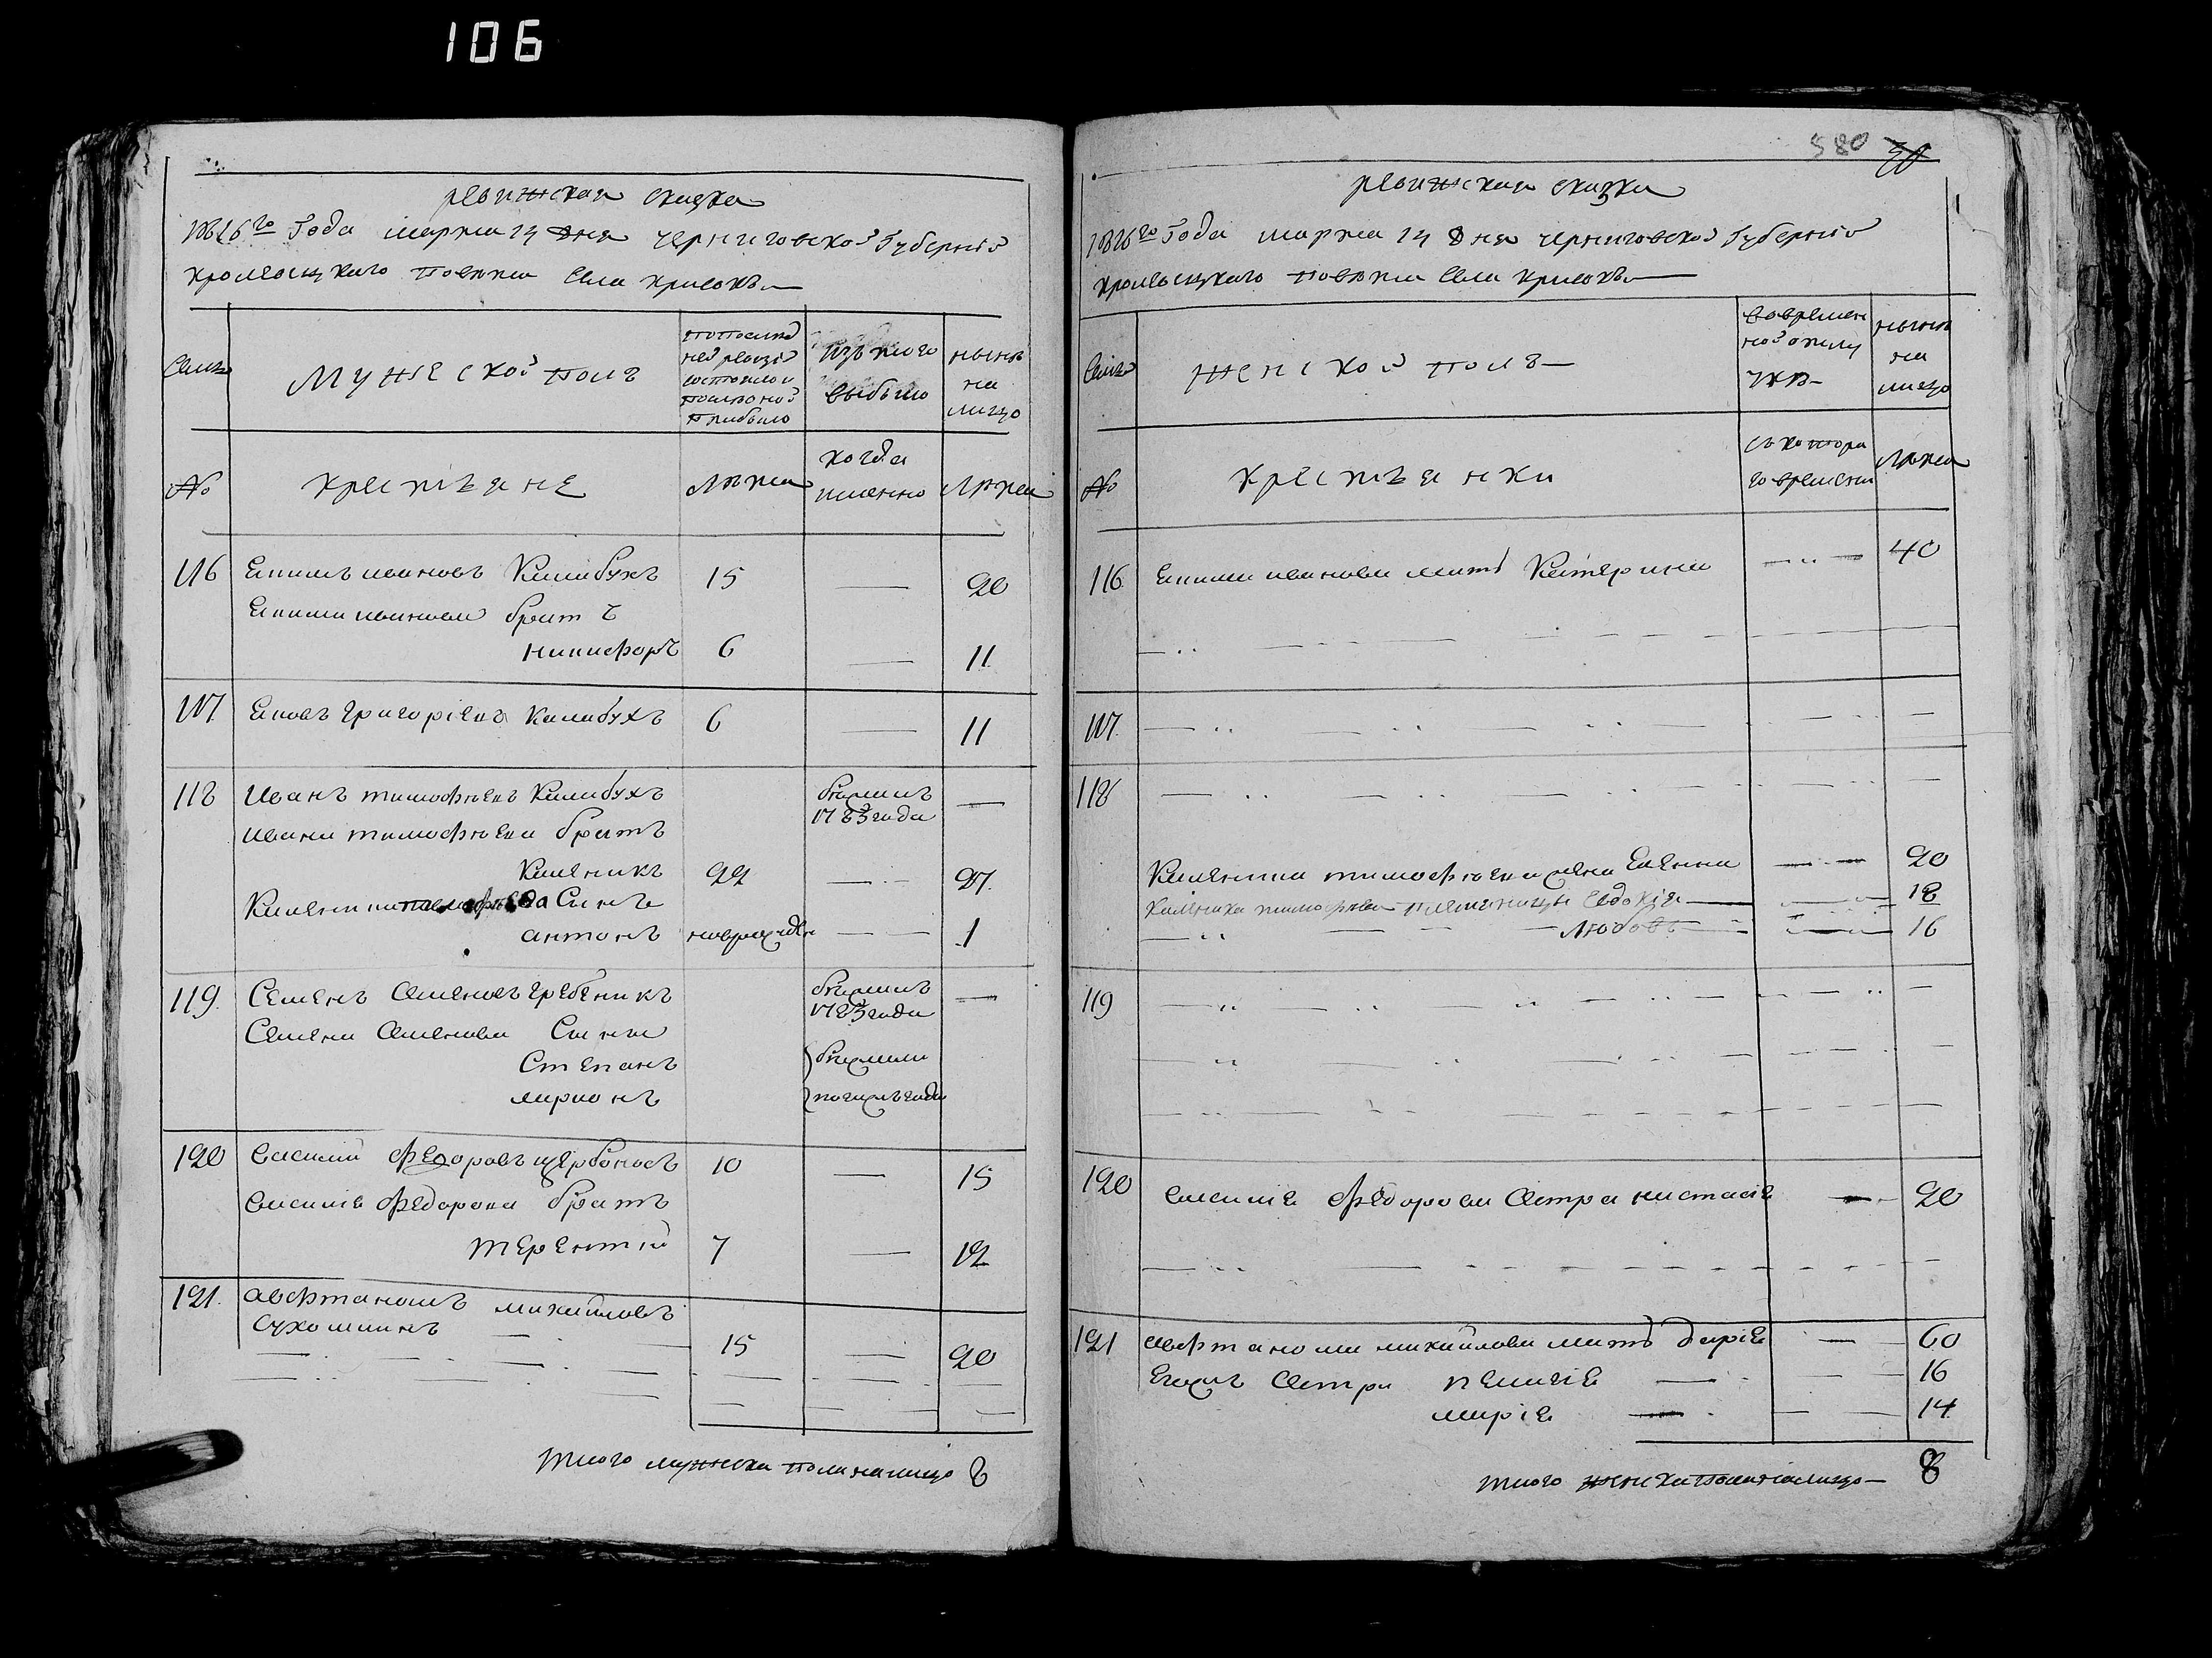 106
ревижская сказка
1816го Года марта 14 дня черниговской Губернiи
кролевецкаго Повѣта Села кривокъ
Семья
Мужеской полъ
по последней ревизiи состояло и после оной прибыло
изъ того выбыло
нынѣ на лицо
№
крестьяне
Лѣта
когда именно
Лѣта
116 Екимъ ивановъ Калибукъ 15 — 20
Екима иванова братъ
никифоръ 6 — 11
117 Яковъ григорiевъ калибухъ 6 — 11
118 Иванъ тимофѣевъ Калибухъ бежалъ 1783 года —
ивана тимофѣева братъ
Каленикъ 22 — 27
Каленика тимофѣева Сынъ
антонъ новрожден — 1
119 Семенъ Семеновъ гребеникъ бежалъ 1783 года —
Семена Семенова Сыны
Степанъ бежали
мирионъ
120 василий Федоровъ щербоносъ 10 — 15
василiя Федорова братъ
терентiй 7 — 12
121 авфтаномъ михайловъ
Сухомлинъ 15 — 20
итого мужеска пола налицо 8
580
ревижская сказка
1816го Года марта 14 дня черниговской Губернiи
кролевецкаго повѣта Села кривокъ
Семья
женской полъ
во временной отлучкѣ
нынѣ на лицо
№
крестьянки
съ котораго времени
Лѣта
116 Екима иванова мать Катерина — 40
117
118
Каленика тимофѣева жена Еленна — 20
каленика тимофѣева племяницы Евдокiя — 18
Любовъ — 16
119
120 василiя Федорова Сестра настасiя — 20
121 авфтанома михайлова мать дарiя — 60
Егожъ Сестри пелагiя — 16
марiя — 14
итого женска пола налицо — 8